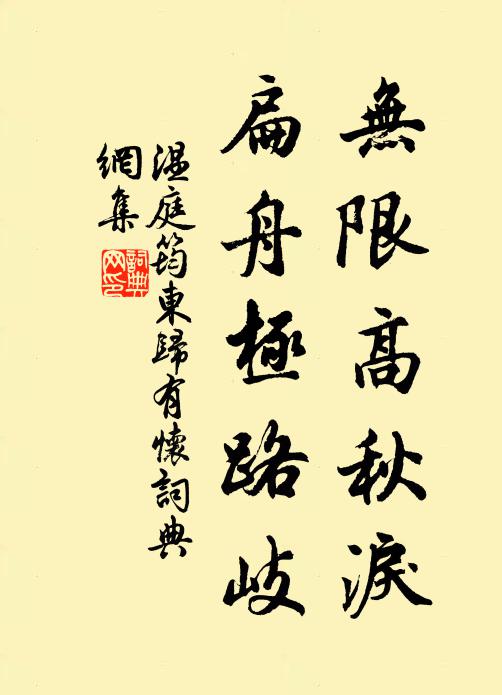 無限高秋淚
扁舟極路岐
温庭筠東歸有懷詞典
網集
詞典
网印